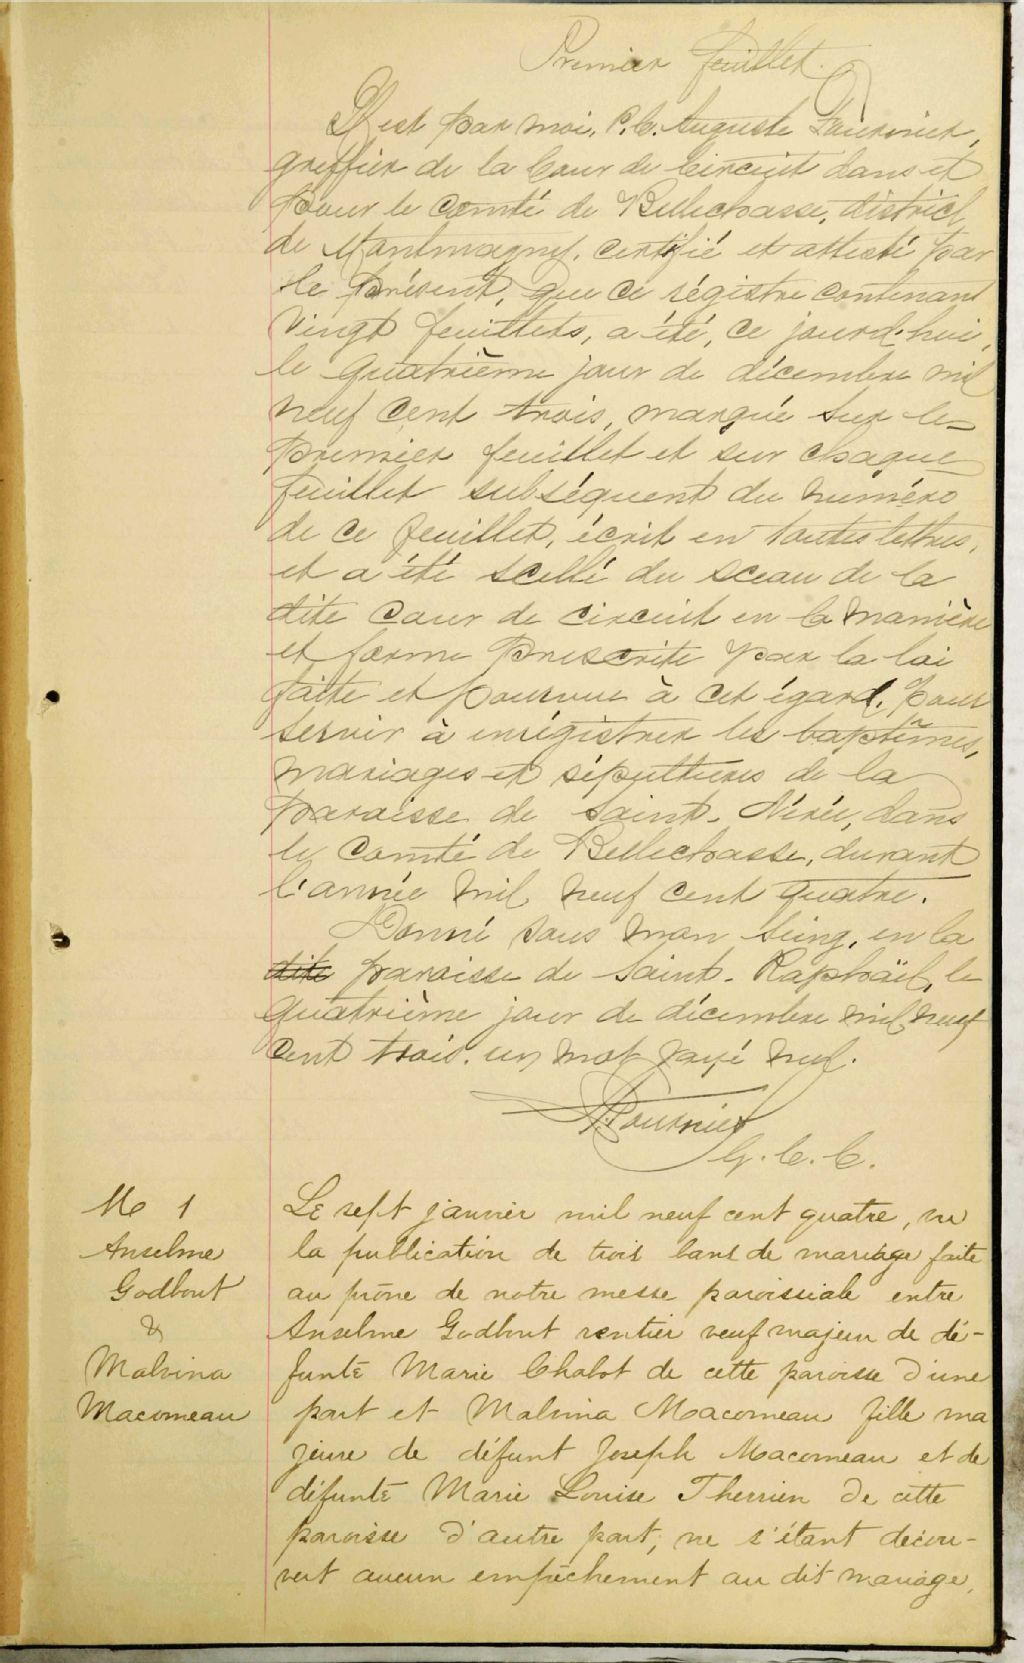 Premier feuillet.
Il est par moi, P. C. Auguste Fournier,
greffier de la Cour de Circuit dans et
pour le comté de Bellechasse, district
de Montmagny, certifié et attesté par
le présent, que ce régistre contenant
vingt feuillets, a été, ce jourd'hui,
le quatrième jour de décembre mil
neuf cent trois, marqué sur le
premier feuillet et sur chaque
feuillet subséquent du numéro
de ce feuillet, écrit en toutes lettres,
et a été scellé du sceau de la
dite cour de circuit en la manière
et forme prescrite par la loi
faite et pourvue à cet égard, pour
servir à enrégistrer les baptêmes,
mariages et sépultures de la
paroisse de Saint-Nérée, dans
le comté de Bellechasse, durant
l'année mil neuf cent quatre.
Donné sous mon seing, en la
dite paroisse de Saint-Raphaël, le
quatrième jour de décembre mil neuf
cent trois. un mot rayé nul.
Fournier
G. C. C.
M 1
Anselme
Godbout
&
Malvina
Macomeau
Le sept janvier mil neuf cent quatre, vu
la publication de trois bans de mariage faite
au prône de notre messe paroissiale entre
Anselme Godbout rentier veuf majeur de dé-
funte Marie Chabot de cette paroisse d'une
part et Malvina Macomeau fille ma
jeure de défunt Joseph Macomeau et de
défunte Marie Louise Therrien de cette
paroisse d'autre part, ne s'étant décou-
vert aucun empêchement au dit mariage,